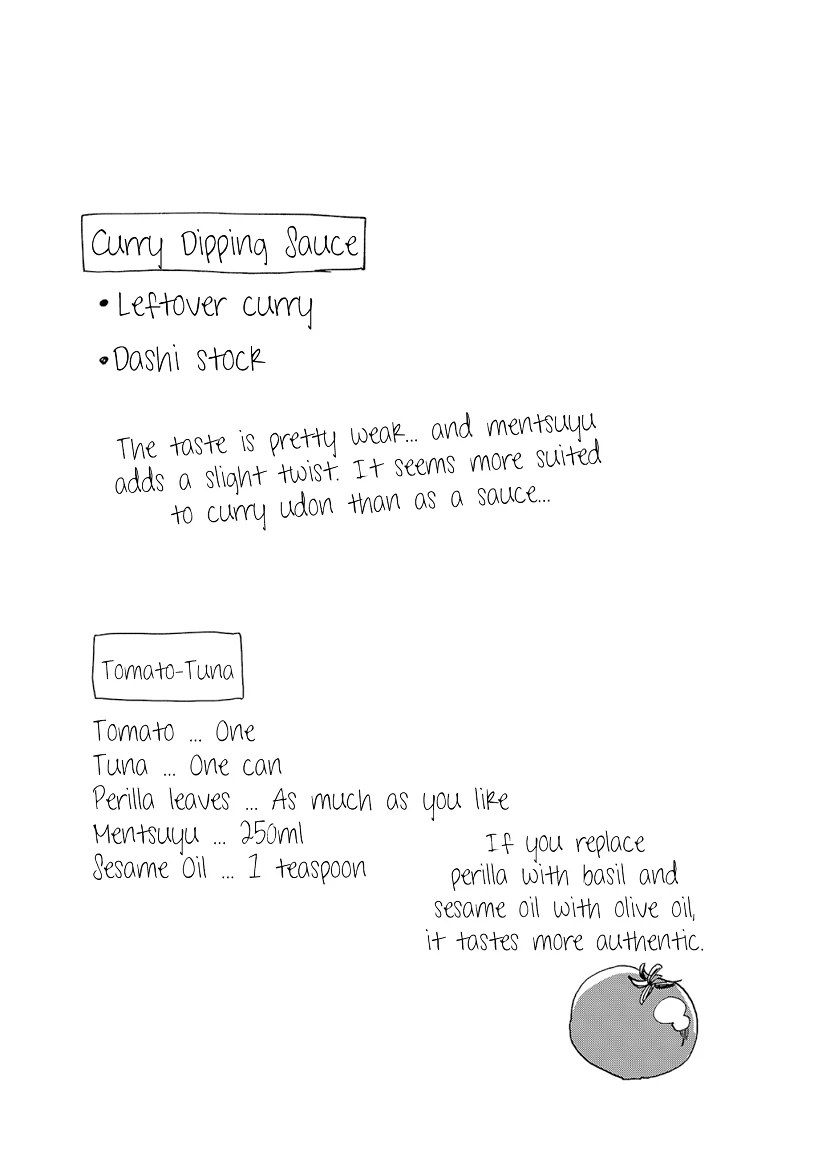 Curry Dipping Sauce
• Leftover curry
• Dashi stock
The taste is pretty weak... and mentsuyu
adds a slight twist. It seems more suited
to curry udon than as a sauce...
Tomato-Tuna
Tomato ... One
Tuna ... One can
Perilla leaves ... As much as you like
Mentsuyu ... 250ml
Sesame Oil ... 1 teaspoon
If you replace
perilla with basil and
sesame oil with olive oil,
it tastes more authentic.